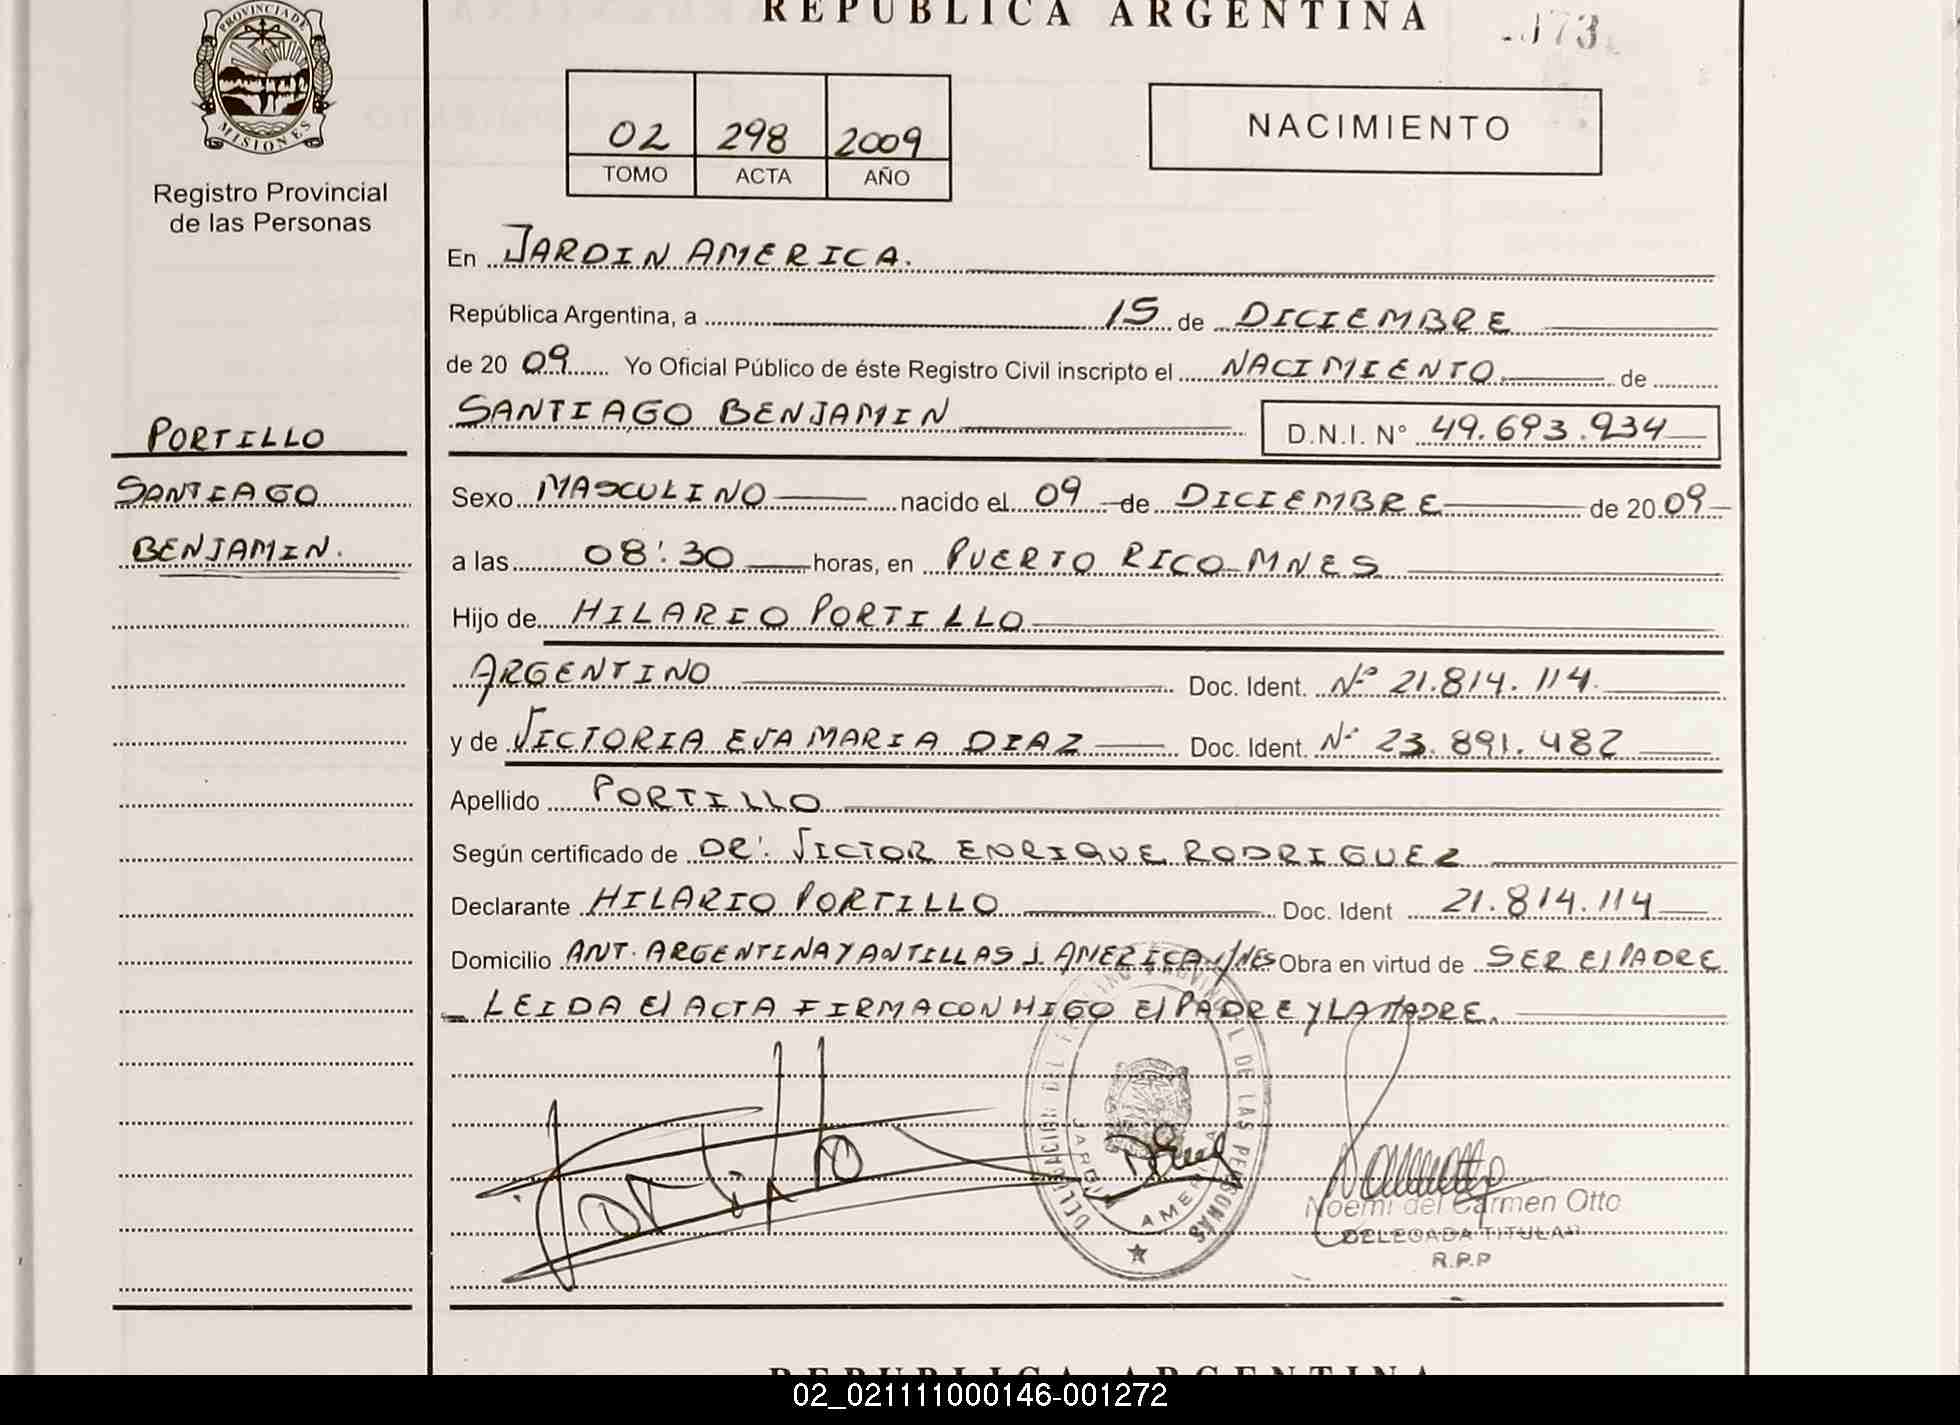 REPUBLICA ARGENTINA
173
PROVINCIA DE
MISIONES
Registro Provincial
de las Personas
02 298 2009
TOMO ACTA AÑO
NACIMIENTO
En JARDIN AMERICA.
República Argentina, a 15 de DICIEMBRE
de 20 09 Yo Oficial Público de éste Registro Civil inscripto el NACIMIENTO de
SANTIAGO BENJAMIN D.N.I. N° 49.693.934
PORTILLO
SANTIAGO
BENJAMIN.
Sexo MASCULINO nacido el 09 de DICIEMBRE de 20 09
a las 08:30 horas, en PUERTO RICO MNES
Hijo de HILARIO PORTILLO
ARGENTINO Doc. Ident. Nº 21.814.114.
y de VICTORIA EVA MARIA DIAZ Doc. Ident. Nº 23.891.482
Apellido PORTILLO
Según certificado de DR. VICTOR ENRIQUE RODRIGUEZ
Declarante HILARIO PORTILLO Doc. Ident 21.814.114
Domicilio ANT. ARGENTINA Y ANTILLAS J. AMERICA MNES Obra en virtud de SER El PADRE
LEIDA El ACTA FIRMA CON MIGO El PADRE Y LA MADRE.
DELEGACION DEL REGISTRO PROVINCIAL DE LAS PERSONAS
JARDIN AMERICA
Portillo
Noemi del Carmen Otto
DELEGADA TITULAR
R.P.P
REPUBLICA ARGENTINA
02_021111000146-001272